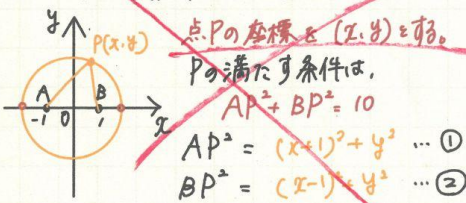 y
P(x,y)
A
B
-1
0
1
x
点Pの座標を(x,y)とする。
Pの満たす条件は,
AP²+BP²=10
AP²=(x+1)²+y² …①
BP²=(x-1)²+y² …②